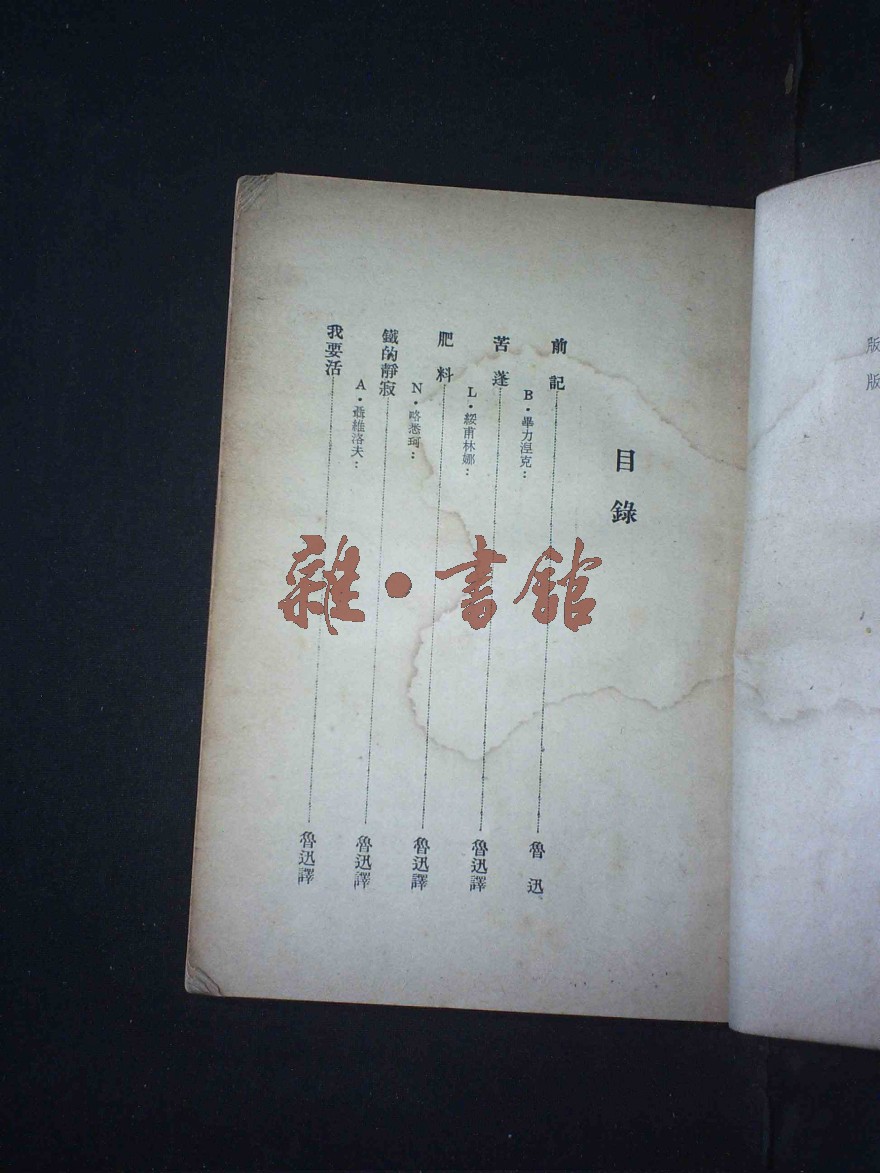 版
版
目錄
前記……魯迅
B·畢力涅克：
苦蓬……魯迅譯
L·綏甫林娜：
肥料……魯迅譯
N·略悉珂：
鐵的靜寂……魯迅譯
A·聶維洛夫：
我要活……魯迅譯
雜·書館